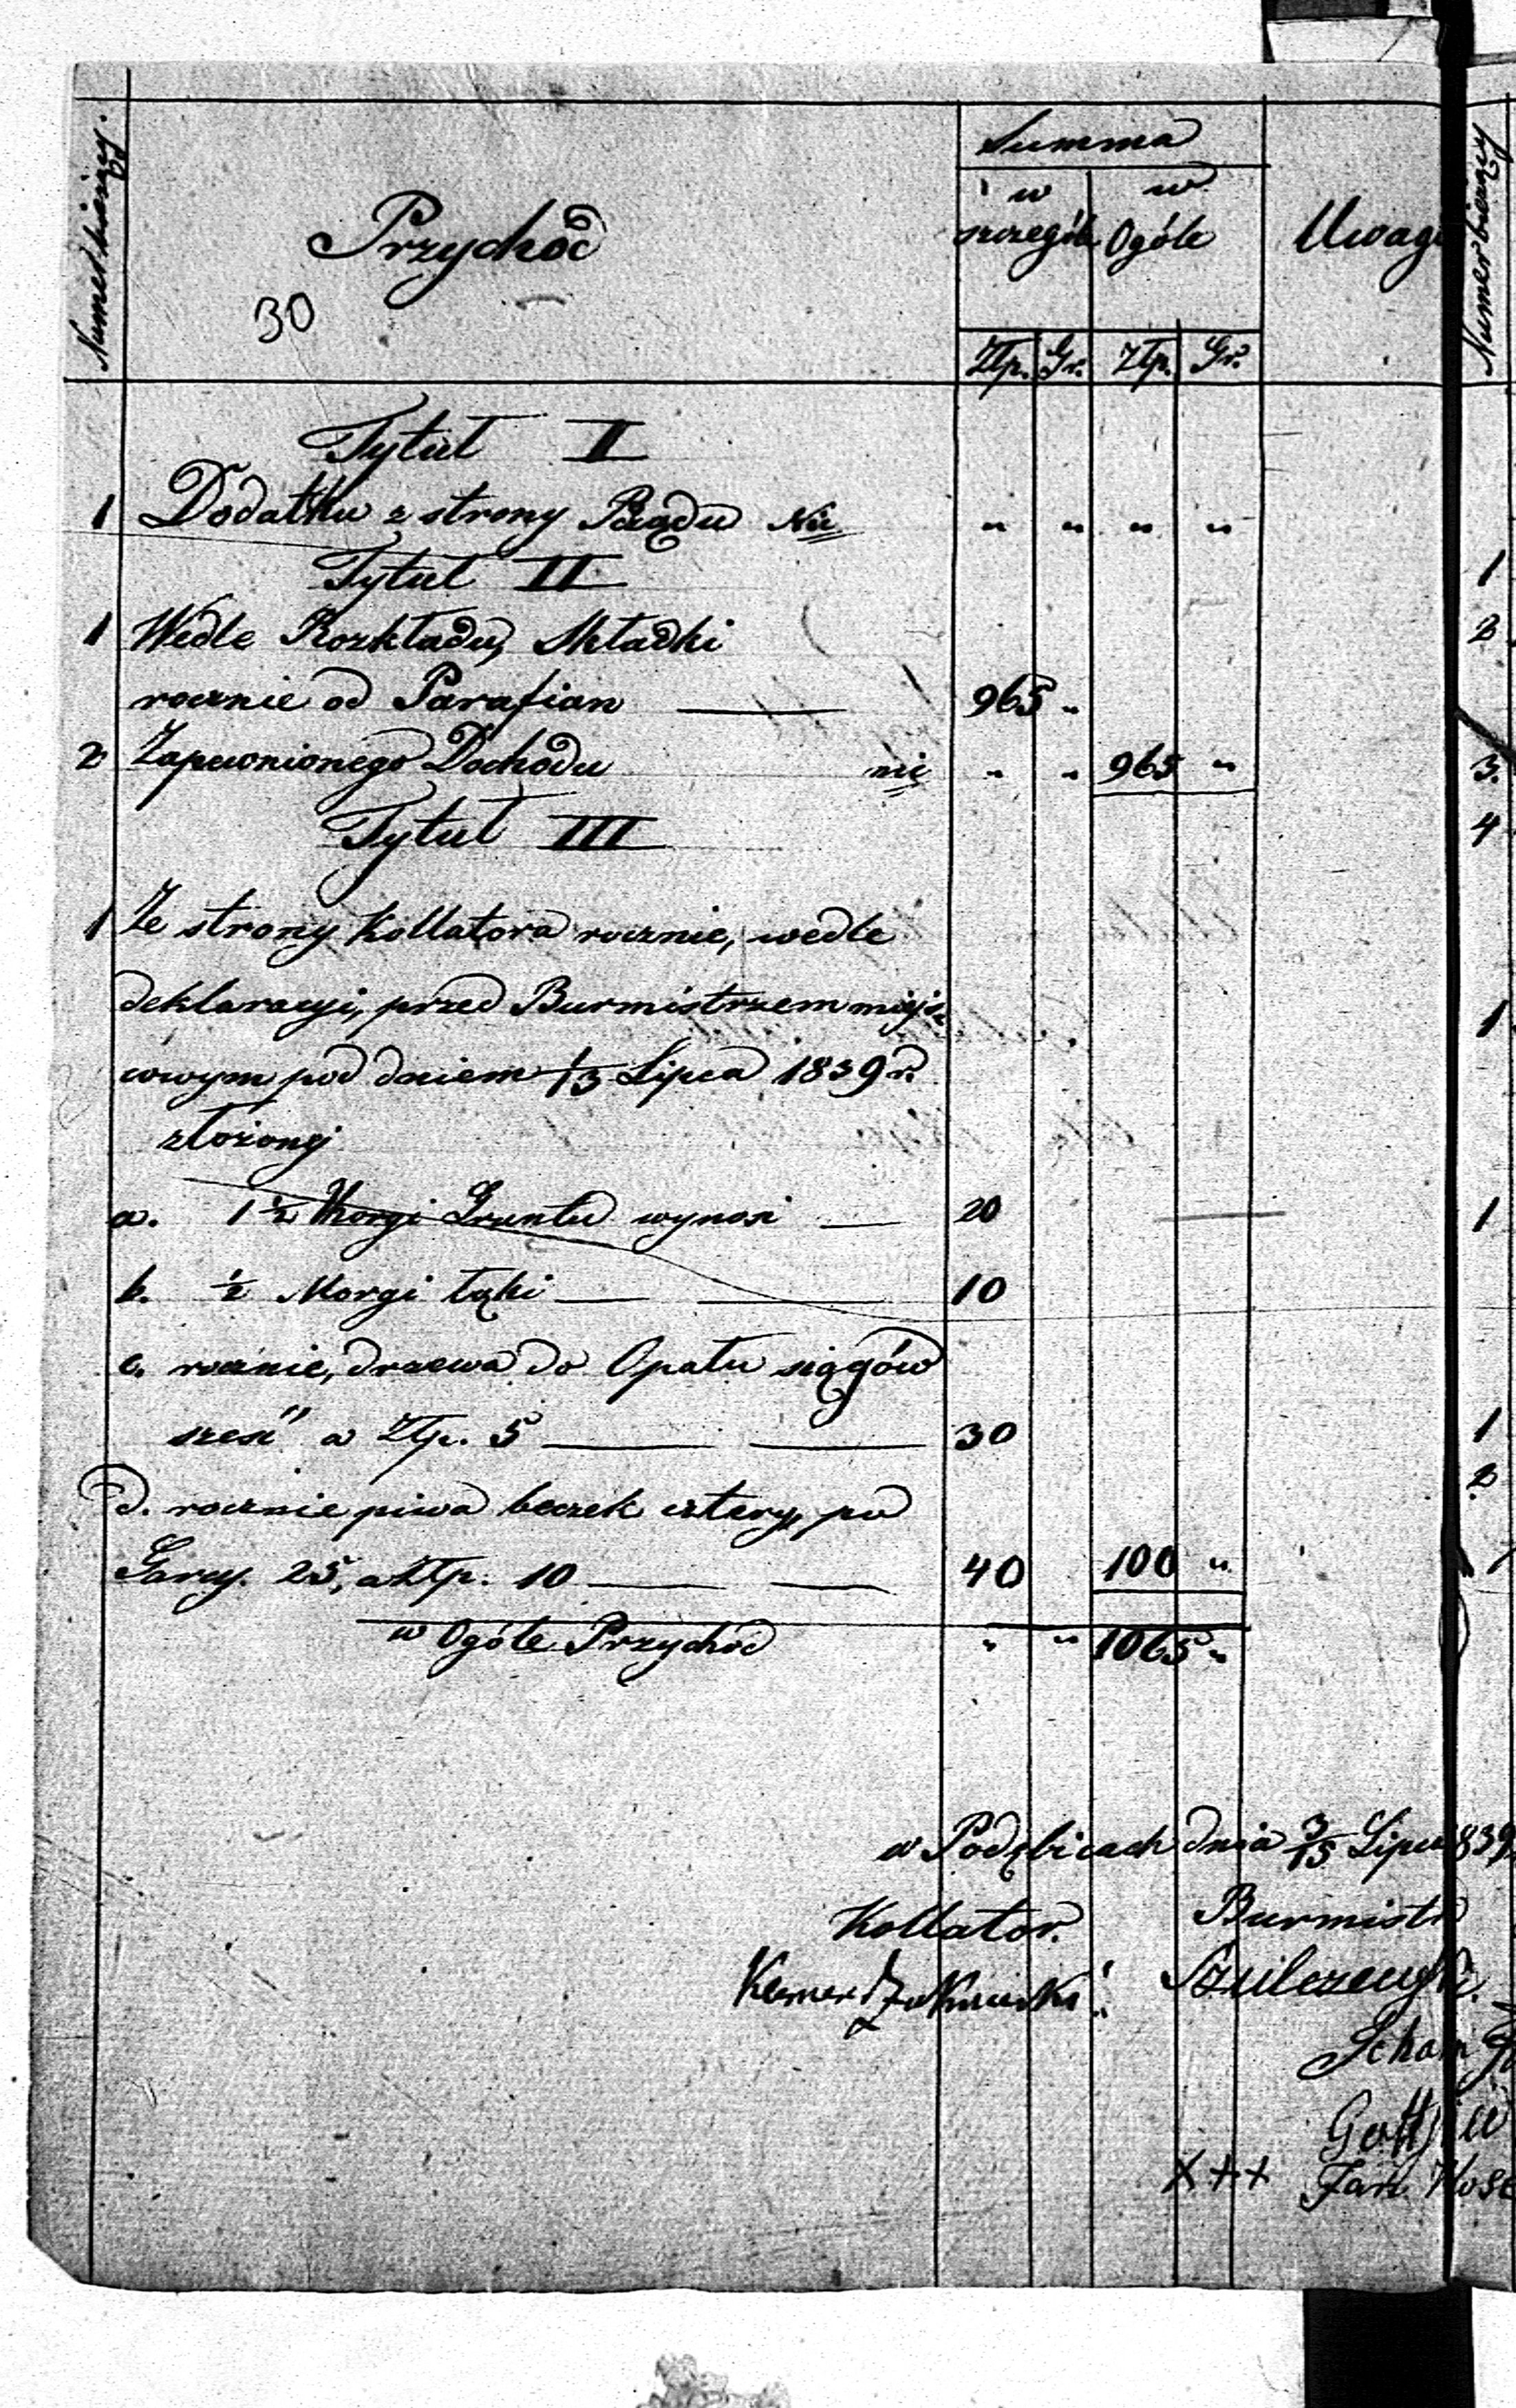 Numer bieżący.
Przychód
Summa
w szczególe
w Ogóle
Uwagi
Numer bieżący
30
Złp. Gr. Złp. Gr.
Tytuł I
1 Dodatku z strony Rządu Nic " " " "
Tytuł II
1 Wedle Rozkładu, Składki
rocznie od Parafian 965 "
2 Zapewnionego Dochodu nic " " 965 "
Tytuł III
1 Ze strony Kollatora rocznie, wedle
deklaracyi, przed Burmistrzem miejs
cowym pod dniem 1/13 Lipca 1839 r.
złożonej
a. 1 1/2 Morgi Gruntu wynosi 20
b. 1/2 Morgi łąki 10
c. rocznie, drzewa do Opału siągów
sześć a Złp. 5 30
d. rocznie piwa beczek cztery, po
Garcy. 25, a Złp. 10 40 100 "
w Ogóle Przychód " " 1065 "
w Podębicach dnia 3/15 Lipca 839
Kollator. Burmistr
Klemens Szulczewski.
Gottf
X++ Jan
1
2
3.
4
1
1
1
2